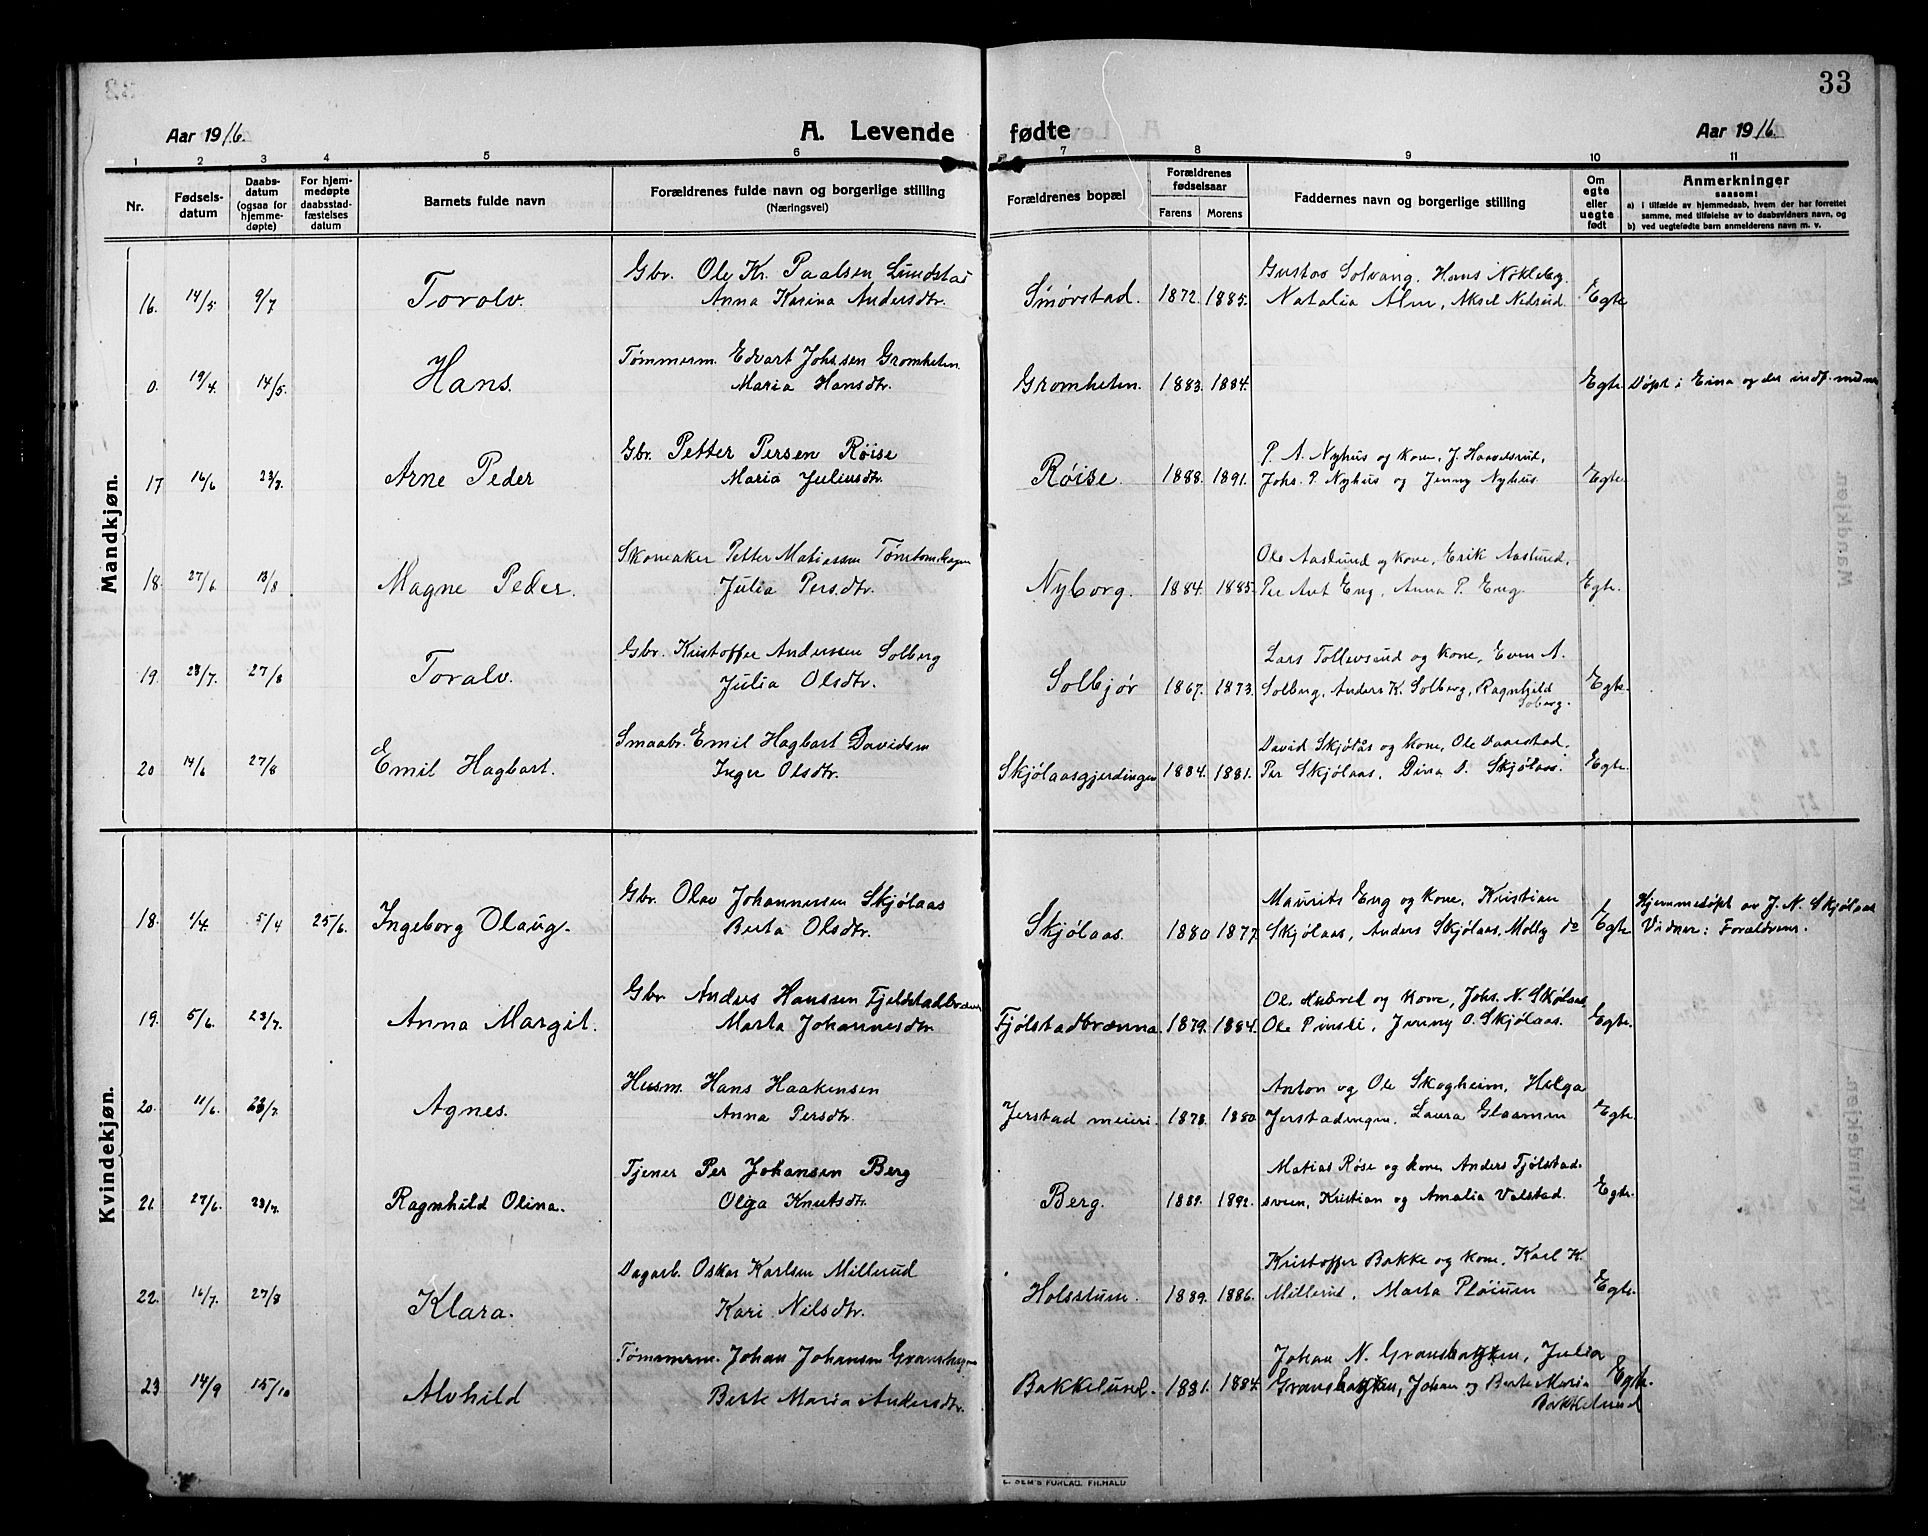 33
Aar 1916. A. Levende fødte Aar 1916.
1 2 3 4 5 6 7 8 9 10 11
Nr. Fødselsdatum Daabsdatum (ogsaa for hjemmedøpte) For hjemmedøpte daabsstadfæstelses datum Barnets fulde navn Forældrenes fulde navn og borgerlige stilling (Næringsvei) Forældrenes bopæl Forældrenes fødselsaar Farens Morens Faddernes navn og borgerlige stilling Om egte eller uegte født Anmerkninger saasom: a) i tilfælde av hjemmedaab, hvem der har forrettet samme, med tilføielse av to daabsvidners navn, og b) ved uegtefødte barn anmelderens navn m. v.
Mandkjøn.
Gbr. Ole Kr. Paalsen Lundstad Gustav Solvang, Hans Nøkleby,
16. 14/5 9/7 Toralv. Anna Karina Andersdtr. Smørstad. 1872. 1885. Natalia Alm, Aksel Nedrud. Egte
Tømmerm. Edvart Johssen Gromheten
0. 19/4. 14/5. Hans. Maria Hansdtr. Gromheten. 1883. 1884. Egte. Døpt i Eina og der indf. m. nr.
Gbr. Petter Persen Røise P. A. Nyhus og kone, J. Haavelsrud,
17 16/6 23/7. Arne Peder Maria Juliusdtr. Røise. 1888. 1891. Johs. P. Nyhus og Jenny Nyhus. Egte.
Skomaker Petter Matiessen Tømtomhagen Ole Aaslund og kone, Erik Aaslund,
18. 27/6. 13/8 Magne Peder. Julia Persdtr. Nyborg. 1884. 1885. Per Ant Eng, Anna P. Eng. Egte.
Gbr. Kristoffer Andersen Solberg Lars Tollevsrud og kone, Even A.
19. 23/7. 27/8 Toralv. Julia Olsdtr. Solbjør 1867. 1873. Solberg, Anders K. Solberg, Ragnhild Soberg. Egte.
Smaabr. Emil Hagbart Davidsen David Skjølås og kone, Ole Daarstad,
20 14/6 27/8 Emil Hagbart. Inger Olsdtr. Skjølaasgjerdingen 1884. 1881. Per Skjølaas, Dina D. Skjølaas. Egte.
Kvindekjøn.
Gbr. Olav Johannessen Skjølaas Maurits Eng og kone, Kristian Hjemmedøpt av J. N. Skjølaas
18. 1/4. 5/4 25/6. Ingeborg Olaug. Berta Olsdtr. Skjølaas. 1880 1877. Skjølaas, Anders Skjølaas, Molly do Egte. Vidner: Forældrene.
Gbr Anders Hanssen Fjeldstadbrænna Ole Hudvel og kone, Johs. N. Skjølaas,
19. 5/6. 23/7. Anna Margit. Marta Johannesdtr. Fjølstadbrænna. 1879. 1884. Ole Pinsli, Jenny O. Skjølaas. Egte.
Husm. Hans Haakensen Anton og Ole Skogheim, Helga
20. 11/6. 23/7. Agnes. Anna Persdtr. Jerstad meieri. 1878. 1880. Jerstadengen, Laura Glaamen Egte.
Tjener Per Johansen Berg Matias Røse og kone, Anders Fjølstad-
21. 27/6. 23/7. Ragnhild Olina. Olga Knutsdtr. Berg. 1889. 1892. sveen, Kristian og Amalia Valstad. Egte.
Dagarb. Oskar Karlsen Millerud Kristoffer Bakke og kone, Karl K.
22. 16/7. 27/8 Klara. Kari Nilsdtr. Holsstuen. 1889. 1886. Millerud, Marta Pløiuen Egte.
Tømmerm. Johan Johansen Granshagen Johan N. Gransbakken, Julia
23 14/9 15/10 Alvhild Berte Maria Andersdtr. Bakkelund. 1881. 1884. Gransbakken, Johan og Berte Maria Bakkelund Egte.
E. SEM'S FORLAG. FR.HALD